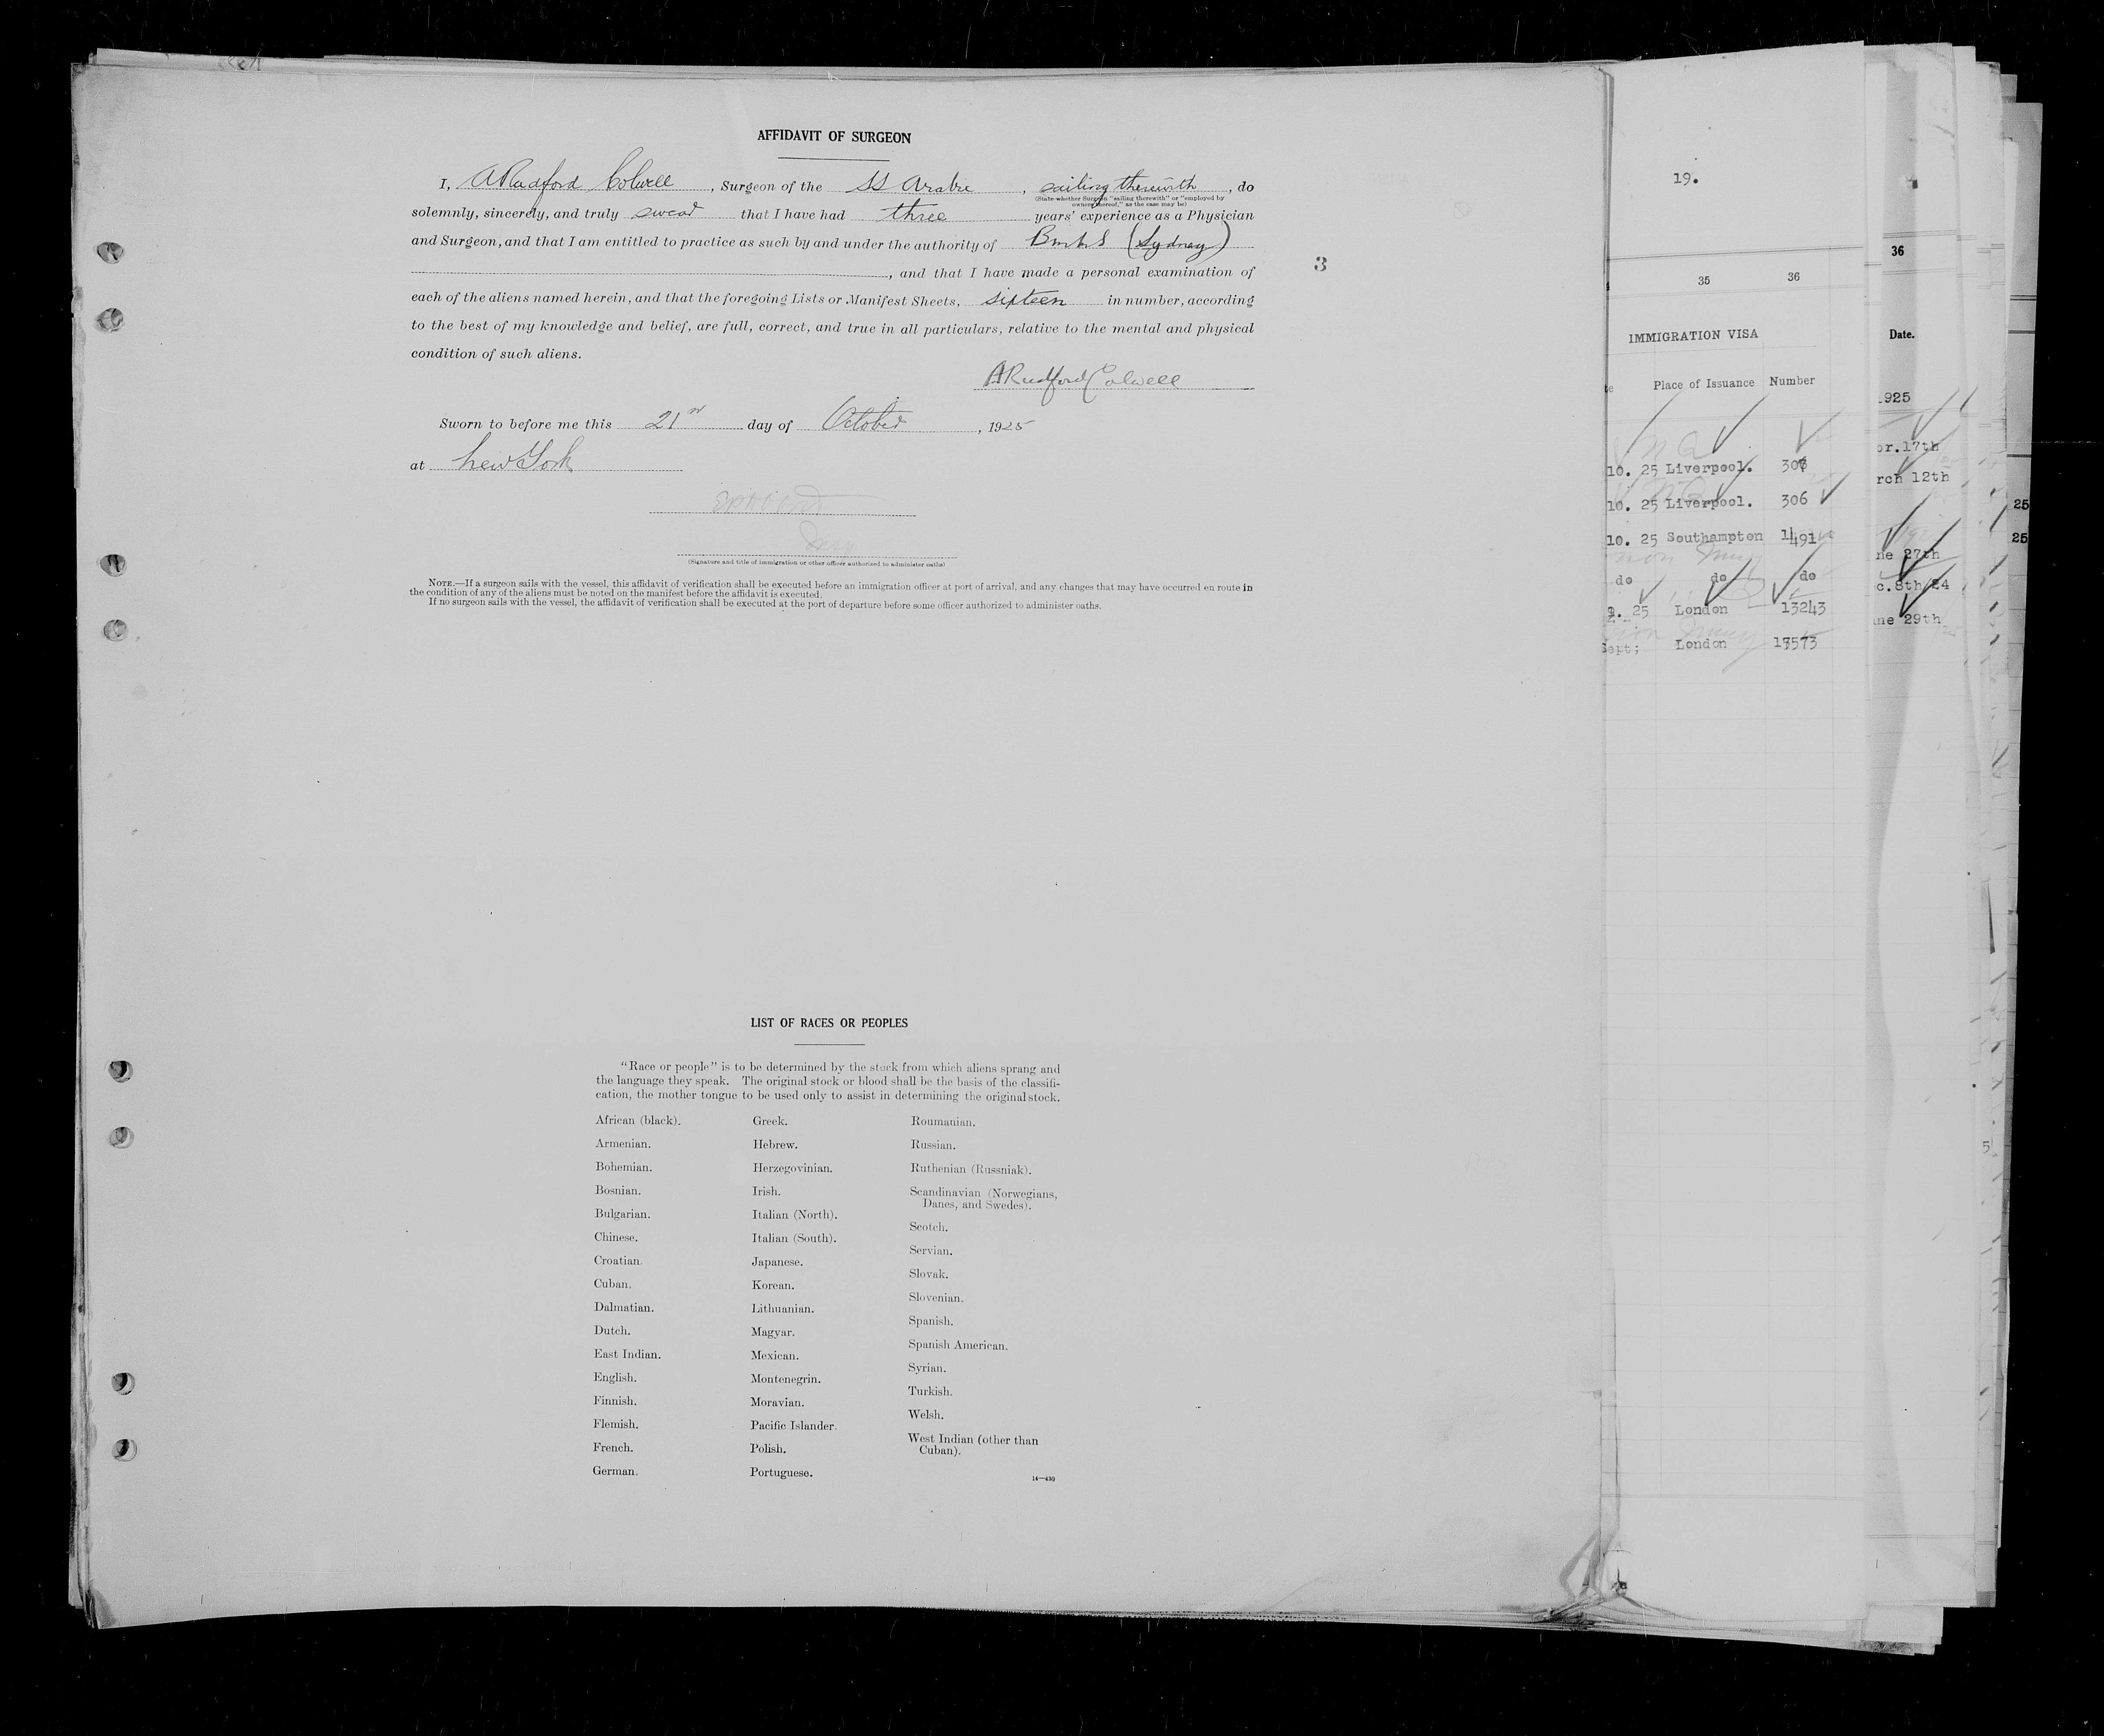 AFFIDAVIT OF SURGEON
I, A Radford Colwell, Surgeon of the SS Arabic, sailing therewith, do
(State whether Surgeon "sailing therewith" or "employed by
owners thereof," as the case may be)
solemnly, sincerely, and truly swear that I have had three years' experience as a Physician
and Surgeon, and that I am entitled to practice as such by and under the authority of (Sydney)
, and that I have made a personal examination of
3
each of the aliens named herein, and that the foregoing Lists or Manifest Sheets, sixteen in number, according
to the best of my knowledge and belief, are full, correct, and true in all particulars, relative to the mental and physical
condition of such aliens.
A Radford Colwell
Sworn to before me this 21st day of October, 1925
at New York
(Signature and title of immigration or other officer authorized to administer oaths)
NOTE.—If a surgeon sails with the vessel, this affidavit of verification shall be executed before an immigration officer at port of arrival, and any changes that may have occurred en route in
the condition of any of the aliens must be noted on the manifest before the affidavit is executed.
If no surgeon sails with the vessel, the affidavit of verification shall be executed at the port of departure before some officer authorized to administer oaths.
LIST OF RACES OR PEOPLES
"Race or people" is to be determined by the stock from which aliens sprang and
the language they speak. The original stock or blood shall be the basis of the classifi-
cation, the mother tongue to be used only to assist in determining the original stock.
African (black).
Armenian.
Bohemian.
Bosnian.
Bulgarian.
Chinese.
Croatian.
Cuban.
Dalmatian.
Dutch.
East Indian.
English.
Finnish.
Flemish.
French.
German.
Greek.
Hebrew.
Herzegovinian.
Irish.
Italian (North).
Italian (South).
Japanese.
Korean.
Lithuanian.
Magyar.
Mexican.
Montenegrin.
Moravian.
Pacific Islander.
Polish.
Portuguese.
Roumanian.
Russian.
Ruthenian (Russniak).
Scandinavian (Norwegians,
Danes, and Swedes).
Scotch.
Servian.
Slovak.
Slovenian.
Spanish.
Spanish American.
Syrian.
Turkish.
Welsh.
West Indian (other than
Cuban).
14—430
19.
35 36
IMMIGRATION VISA
Place of Issuance Number
10. 25 Liverpool.
10. 25 Liverpool. 306
10. 25 Southampton 1491
do do do
25 London 13243
Sept; London
36
Date.
1925
17th
12th
27th
8th/24
29th
25
25
5